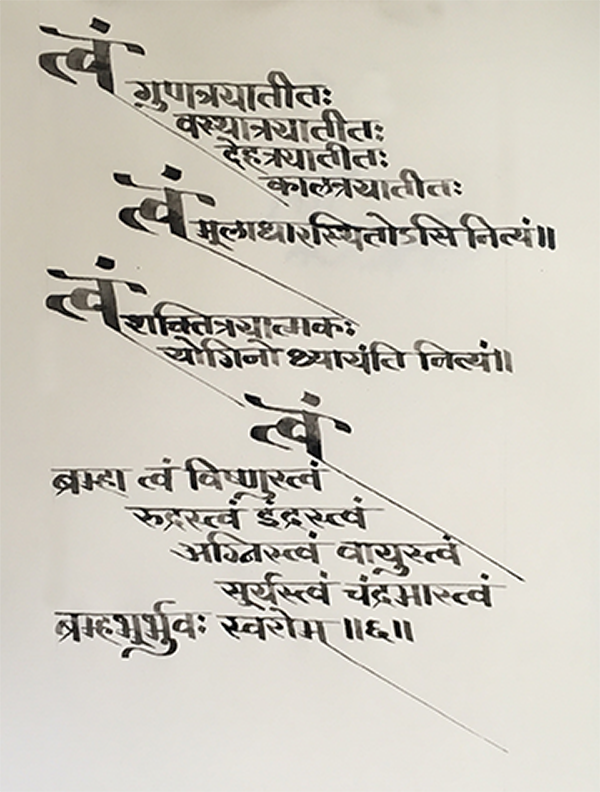 त्वं
गुणत्रयातीतः
वस्थात्रयातीतः
देहत्रयातीतः
कालत्रयातीतः
त्वं
मुलाधारस्थितोऽसि नित्यं॥
त्वं
शक्तित्रयात्मकः
योगिनो ध्यायंति नित्यं॥
त्वं
ब्रम्हा त्वं विष्णुस्त्वं
रुद्रस्त्वं इंद्रस्त्वं
अग्निस्त्वं वायुस्त्वं
सुर्यस्त्वं चंद्रमास्त्वं
ब्रम्हभूर्भुवः स्वरोम ॥६॥